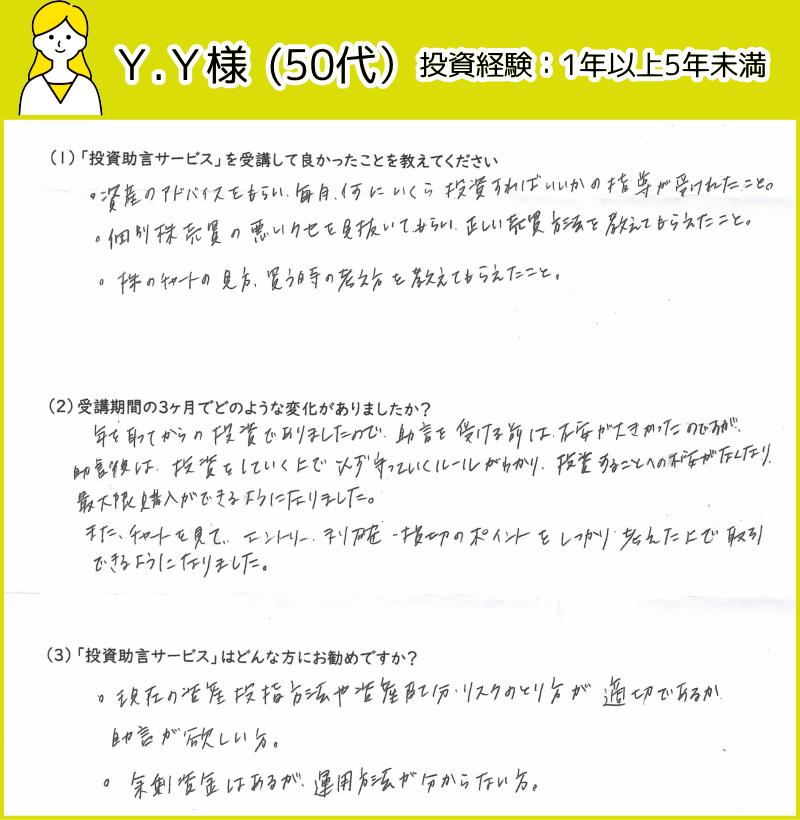 Y.Y様 (50代) 投資経験：1年以上5年未満
(1)「投資助言サービス」を受講して良かったことを教えてください
。資産のアドバイスをもらい、毎月、何にいくら投資すればいいかの指導が受けれたこと。
。個別株売買の悪いクセを見抜いてもらい、正しい売買方法を教えてもらえたこと。
。株のチャートの見方、買う時の考え方を教えてもらえたこと。
(2)受講期間の3ヶ月でどのような変化がありましたか？
年を取てからの投資でありましたので、助言を受ける前は、不安が大きかったのですが、
助言後は、投資をしていく上で必ず守っていくルールがわかり、投資することへの不安がなくなり、
最大限購入ができるようになりました。
また、チャートを見て、エントリー、利確・損切のポイントをしっかり考えた上で取引
できるようになりました。
(3)「投資助言サービス」はどんな方にお勧めですか？
。現在の資産投指方法や資産配分・リスクのとり方が適切であるか
助言が欲しい方。
。余剰資金はあるが、運用方法が分からない方。